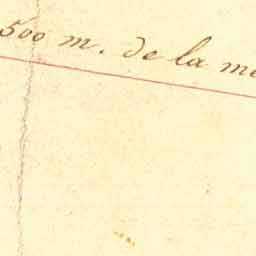 500 m. de la